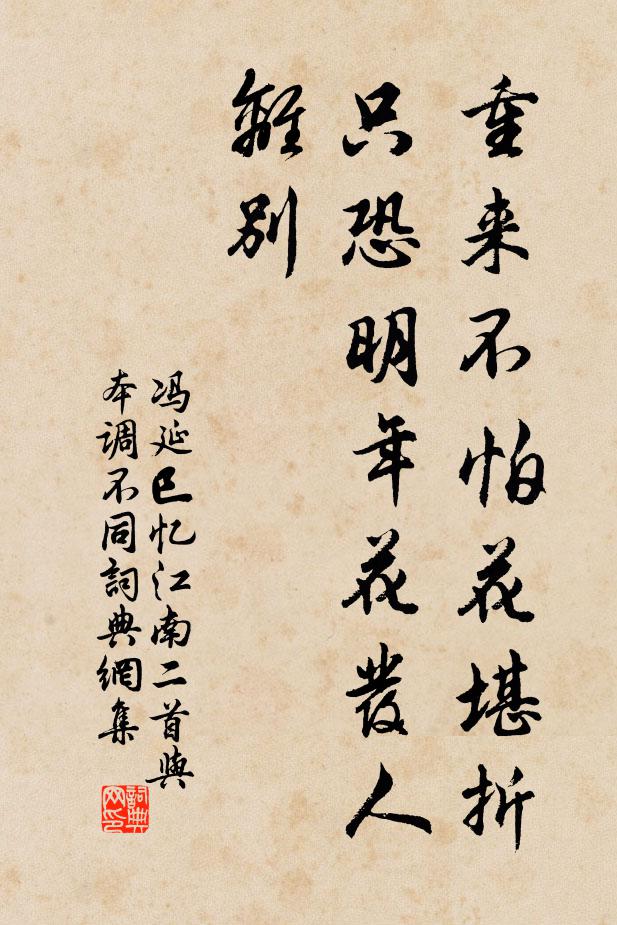 重来不怕花堪折
只恐明年花發人
離别
冯延巳忆江南二首與
本调不同詞典網集
詞典网印